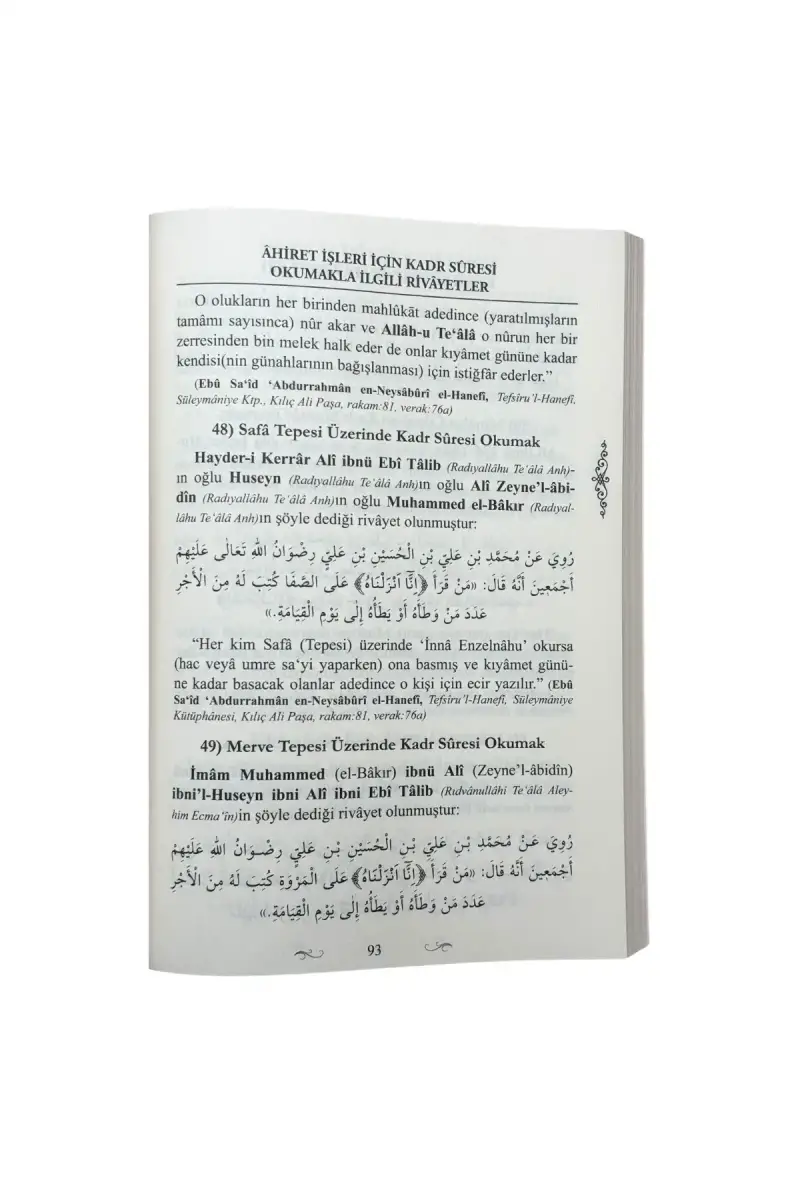 ÂHİRET İŞLERİ İÇİN KADR SÛRESİ
OKUMAKLA İLGİLİ RİVÂYETLER
O olukların her birinden mahlûkāt adedince (yaratılmışların
tamâmı sayısınca) nûr akar ve Allâh-u Te‘âlâ o nûrun her bir
zerresinden bin melek halk eder de onlar kıyâmet gününe kadar
kendisi(nin günahlarının bağışlanması) için istiğfâr ederler.”
(Ebû Sa‘îd ‘Abdurrahmân en-Neysâbûrî el-Hanefî, Tefsîru’l-Hanefî,
Süleymâniye Ktp., Kılıç Ali Paşa, rakam:81, verak:76a)
48) Safâ Tepesi Üzerinde Kadr Sûresi Okumak
Hayder-i Kerrâr Alî ibnü Ebî Tâlib (Radıyallâhu Te‘âlâ Anh)-
ın oğlu Huseyn (Radıyallâhu Te‘âlâ Anh)ın oğlu Alî Zeyne’l-âbi-
dîn (Radıyallâhu Te‘âlâ Anh)ın oğlu Muhammed el-Bâkır (Radıyal-
lâhu Te‘âlâ Anh)ın şöyle dediği rivâyet olunmuştur:
رُوِيَ عَنْ مُحَمَّدِ بْنِ عَلِيِّ بْنِ الْحُسَيْنِ بْنِ عَلِيٍّ رِضْوَانُ اللهِ تَعَالَى عَلَيْهِمْ
أَجْمَعِينَ أَنَّهُ قَالَ: «مَنْ قَرَأَ ﴿إِنَّا أَنْزَلْنَاهُ﴾ عَلَى الصَّفَا كُتِبَ لَهُ مِنَ الْأَجْرِ
عَدَدَ مَنْ وَطَأَهُ أَوْ يَطَأُهُ إِلَى يَوْمِ الْقِيَامَةِ.»
“Her kim Safâ (Tepesi) üzerinde ‘İnnâ Enzelnâhu’ okursa
(hac veyâ umre sa‘yi yaparken) ona basmış ve kıyâmet günü-
ne kadar basacak olanlar adedince o kişi için ecir yazılır.” (Ebû
Sa‘îd ‘Abdurrahmân en-Neysâbûrî el-Hanefî, Tefsîru’l-Hanefî, Süleymâniye
Kütüphânesi, Kılıç Ali Paşa, rakam:81, verak:76a)
49) Merve Tepesi Üzerinde Kadr Sûresi Okumak
İmâm Muhammed (el-Bâkır) ibnü Alî (Zeyne’l-âbidîn)
ibni’l-Huseyn ibni Alî ibni Ebî Tâlib (Rıdvânullâhi Te‘âlâ Aley-
him Ecma‘în)in şöyle dediği rivâyet olunmuştur:
رُوِيَ عَنْ مُحَمَّدِ بْنِ عَلِيِّ بْنِ الْحُسَيْنِ بْنِ عَلِيٍّ رِضْوَانُ اللهِ عَلَيْهِمْ
أَجْمَعِينَ أَنَّهُ قَالَ: «مَنْ قَرَأَ ﴿إِنَّا أَنْزَلْنَاهُ﴾ عَلَى الْمَرْوَةِ كُتِبَ لَهُ مِنَ الْأَجْرِ
عَدَدَ مَنْ وَطَأَهُ أَوْ يَطَأُهُ إِلَى يَوْمِ الْقِيَامَةِ.»
93